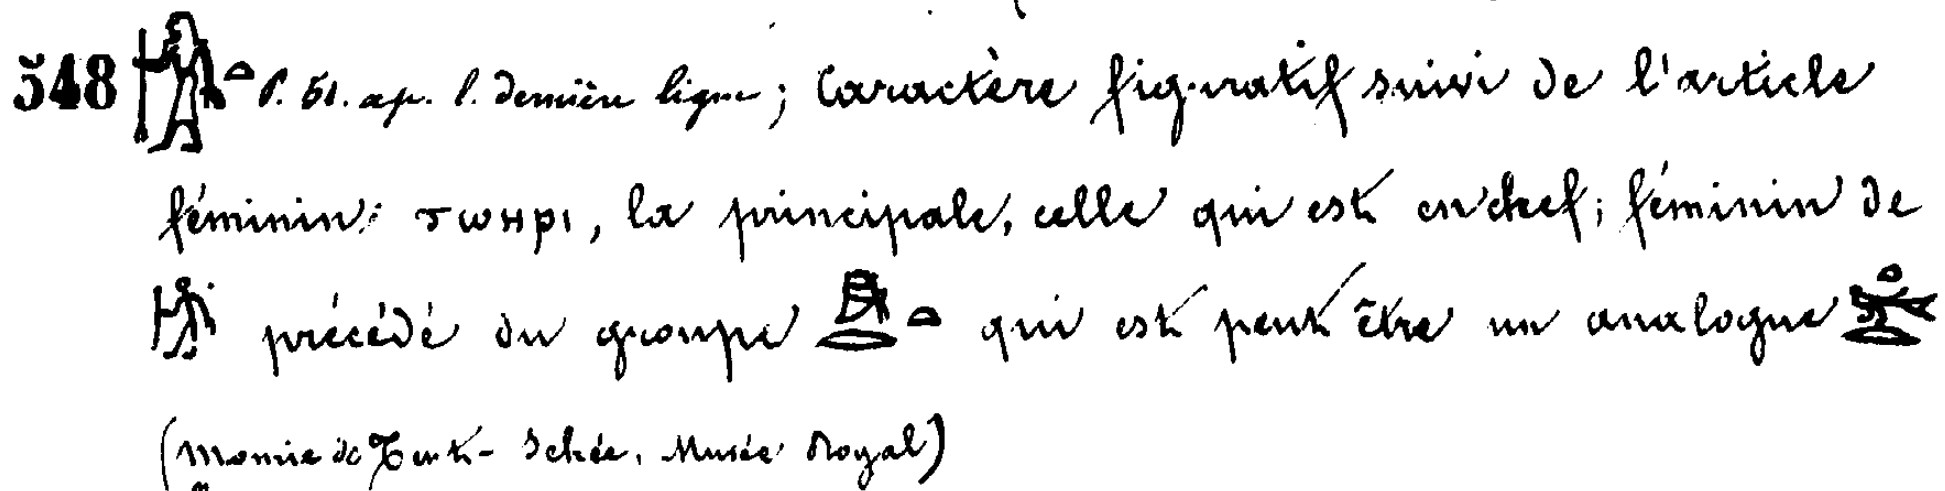 548 𓀙𓏏 P. 51. ap. l. dernière ligne ; Caractère figuratif suivi de l'article
féminin; ⲧⲱⲏⲣⲓ, la principale, celle qui est en chef ; féminin de
précédé du groupe qui est peut être un analogue
(Momie de Tent-Schée, Musée Royal)